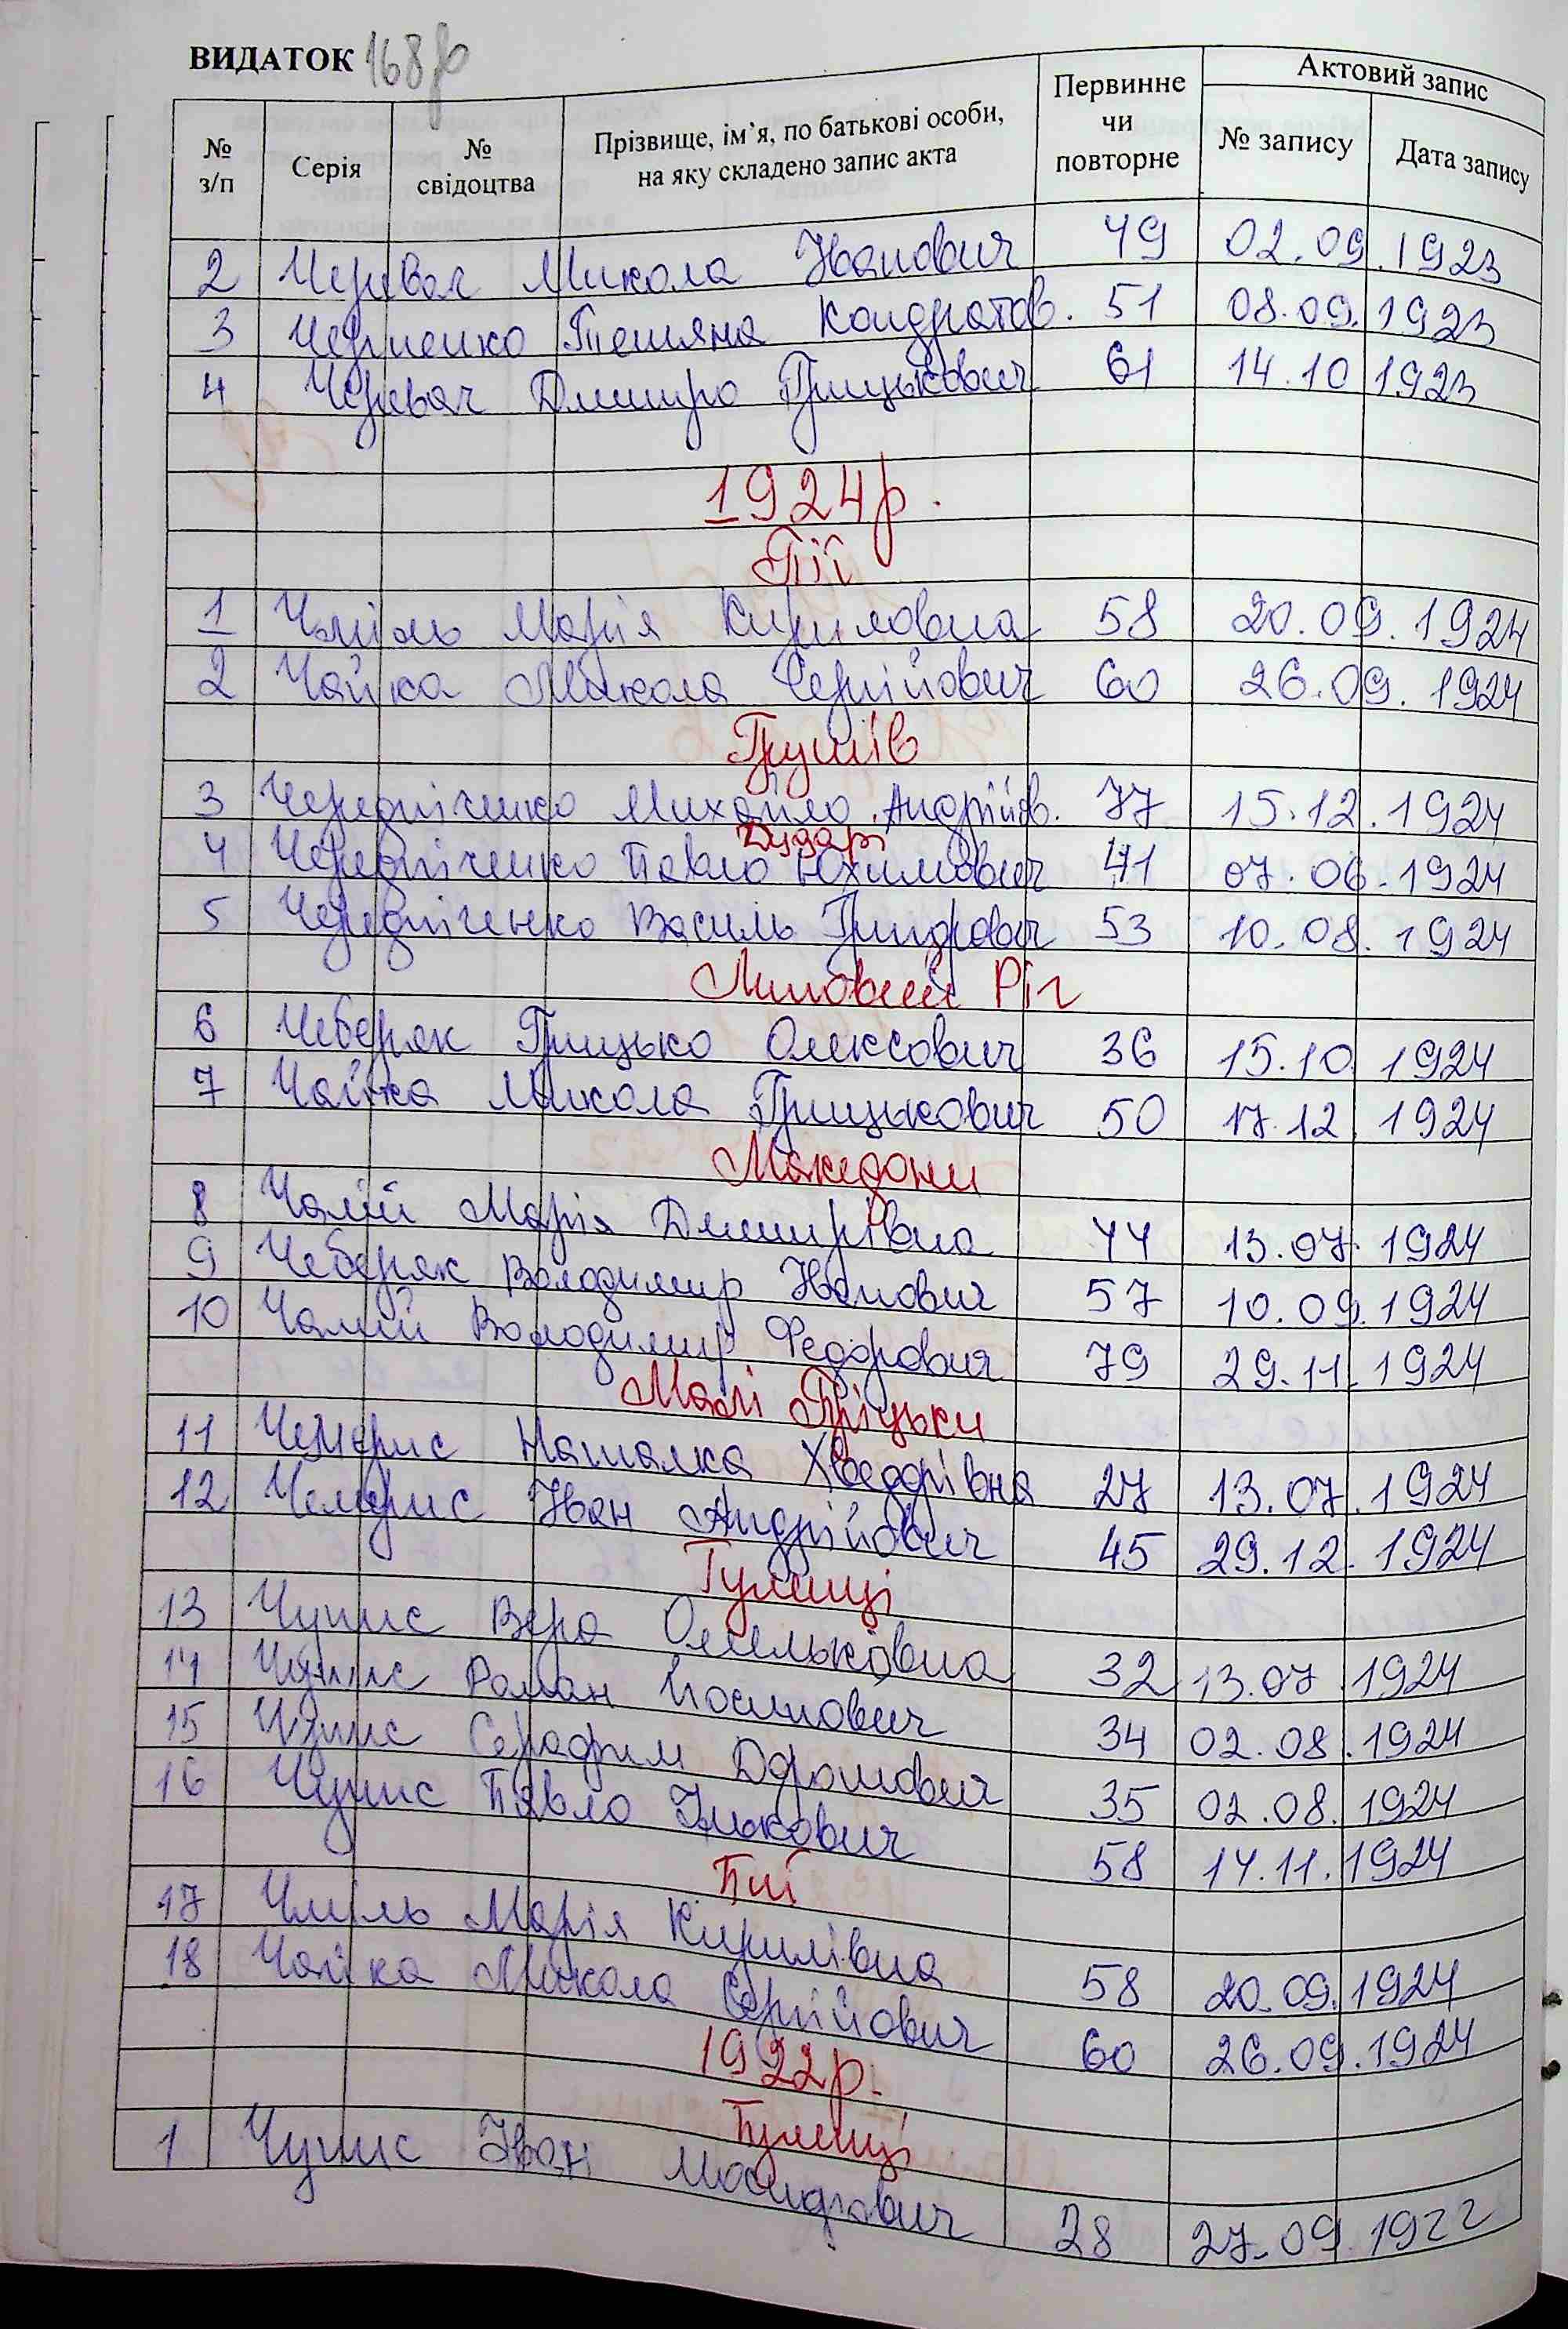 ВИДАТОК 168
№ з/п Серія № свідоцтва Прізвище, ім’я, по батькові особи, на яку складено запис акта Первинне чи повторне Актовий запис № запису Дата запису
2 Черевач Микола Іванович 49 02.09.1923
3 Черненко Тетяна Кондратов. 51 08.09.1923
4 Черевач Дмитро Грицькович 61 14.10 1923
1924р.
Пії
1 Чміль Марія Кириловна 58 20.09.1924
2 Чайка Микола Сергійович 60 26.09.1924
Грушів
3 Чередніченко Михайло Андрійов. 77 15.12.1924
Дударі
4 Чередніченко Павло Юхимович 41 07.06.1924
5 Чередніченко Василь Григорович 53 10.08.1924
Липовий Ріг
6 Чеберяк Грицько Олексович 36 15.10 1924
7 Чайка Микола Грицькович 50 17.12 1924
Македони
8 Чалий Марія Дмитрівна 44 13.07 1924
9 Чеберяк Володимир Іванович 57 10.09.1924
10 Чалий Володимир Федорович 79 29.11 1924
Малі Пріцьки
11 Чемерис Наталка Хведорівна 27 13.07.1924
12 Чемерис Іван Андрійович 45 29.12.1924
Тулинці
13 Чупис Вера Омельковна 32 13.07 1924
14 Чупис Роман Йосипович 34 02.08.1924
15 Чупис Серафим 35 02.08.1924
16 Чупис Павло Ількович 58 14.11.1924
Пії
17 Чміль Марія Кирилівна 58 20.09.1924
18 Чайка Микола Сергійович 60 26.09.1924
1922р.
Тулинці
1 Чупис Іван 28 27.09 1922